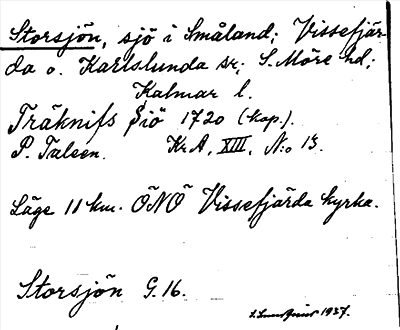 Storsjön, sjö i Småland; Vissefjär-
da o. Karlslunda sn; S. Möre hd;
Kalmar l.
Träknifs Siö 1720 (kop.).
P. Taleen. Kr A, XIII, N:o 13.
Läge 11 km. ÖNÖ Vissefjärda kyrka.
Storsjön G. 16.
1937.